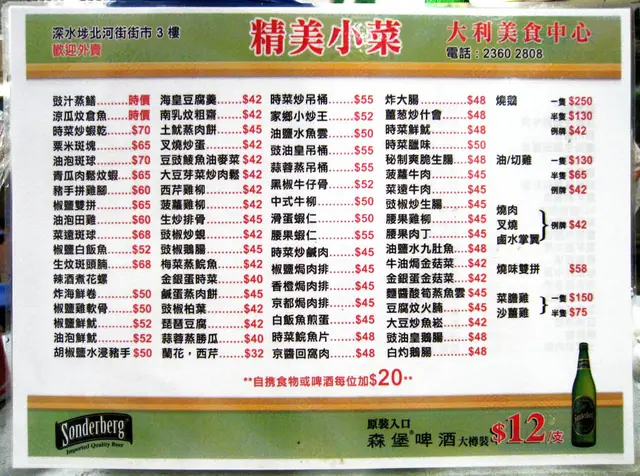 深水埗北河街街市 3 樓
歡迎外賣
精美小菜
大利美食中心
電話：2360 2808
豉汁蒸鱔............時價
涼瓜炆倉魚........時價
時菜炒蝦乾........$70
粟米斑塊............$65
油泡斑球............$70
青瓜肉鬆炆蝦....$65
豬手拼雞腳........$60
椒鹽雙拼............$65
油泡田雞............$60
菜遠斑球............$68
椒鹽白飯魚........$52
生炆斑頭腩........$68
辣酒煮花螺
炸海鮮卷............$50
椒鹽雞軟骨........$50
椒鹽鮮魷............$52
油泡鮮魷............$52
胡椒鹽水浸豬手 $50
海皇豆腐羹........$42
南乳炆粗齋........$42
土魷蒸肉餅........$45
叉燒炒蛋............$42
豆豉鯪魚油麥菜 $42
大豆芽菜炒肉鬆 $42
西芹雞柳............$42
菠蘿雞柳............$42
生炒排骨............$45
豉椒炒蜆............$42
豉椒鵝腸............$45
梅菜蒸鯇魚........$42
金銀蛋時菜........$40
鹹蛋蒸肉餅........$45
豉椒柏葉............$42
琵琶豆腐............$42
蒜蓉蒸勝瓜........$40
蘭花，西芹........$32
時菜炒吊桶........$55
家鄉小炒王........$52
油鹽水魚雲........$50
豉油皇吊桶........$55
蒜蓉蒸吊桶........$55
黑椒牛仔骨........$52
中式牛柳............$50
滑蛋蝦仁............$50
腰果蝦仁............$55
時菜炒鹹肉........$45
椒鹽焗肉排........$45
香橙焗肉排........$45
京都焗肉排........$45
白飯魚煎蛋........$45
時菜鯇魚片........$48
京醬回窩肉........$48
炸大腸................$48
薑葱炒什會........$48
時菜鮮魷............$48
時菜臘味............$50
秘制爽脆生腸....$48
菠蘿牛肉............$45
菜遠牛肉............$45
豉椒炒生腸........$45
腰果雞柳............$45
腰果肉丁............$45
油鹽水九肚魚....$48
牛油焗金菇菜....$42
金銀蛋金菇菜....$42
麵醬酸筍蒸魚雲 $45
豆腐炆火腩........$45
大豆炒魚崧........$42
豉油皇鵝腸........$48
白灼鵝腸............$48
燒鵝 一隻 $250
半隻 $130
例牌 $42
油/切雞 一隻 $130
半隻 $65
例牌 $42
燒肉
叉燒
鹵水掌翼
例牌 $42
燒味雙拼 $58
菜膽雞 一隻 $150
沙薑雞 半隻 $75
**自携食物或啤酒每位加$20**
Sonderberg
Imported Quality Beer
原裝入口
森堡®啤酒大樽裝 $12/支